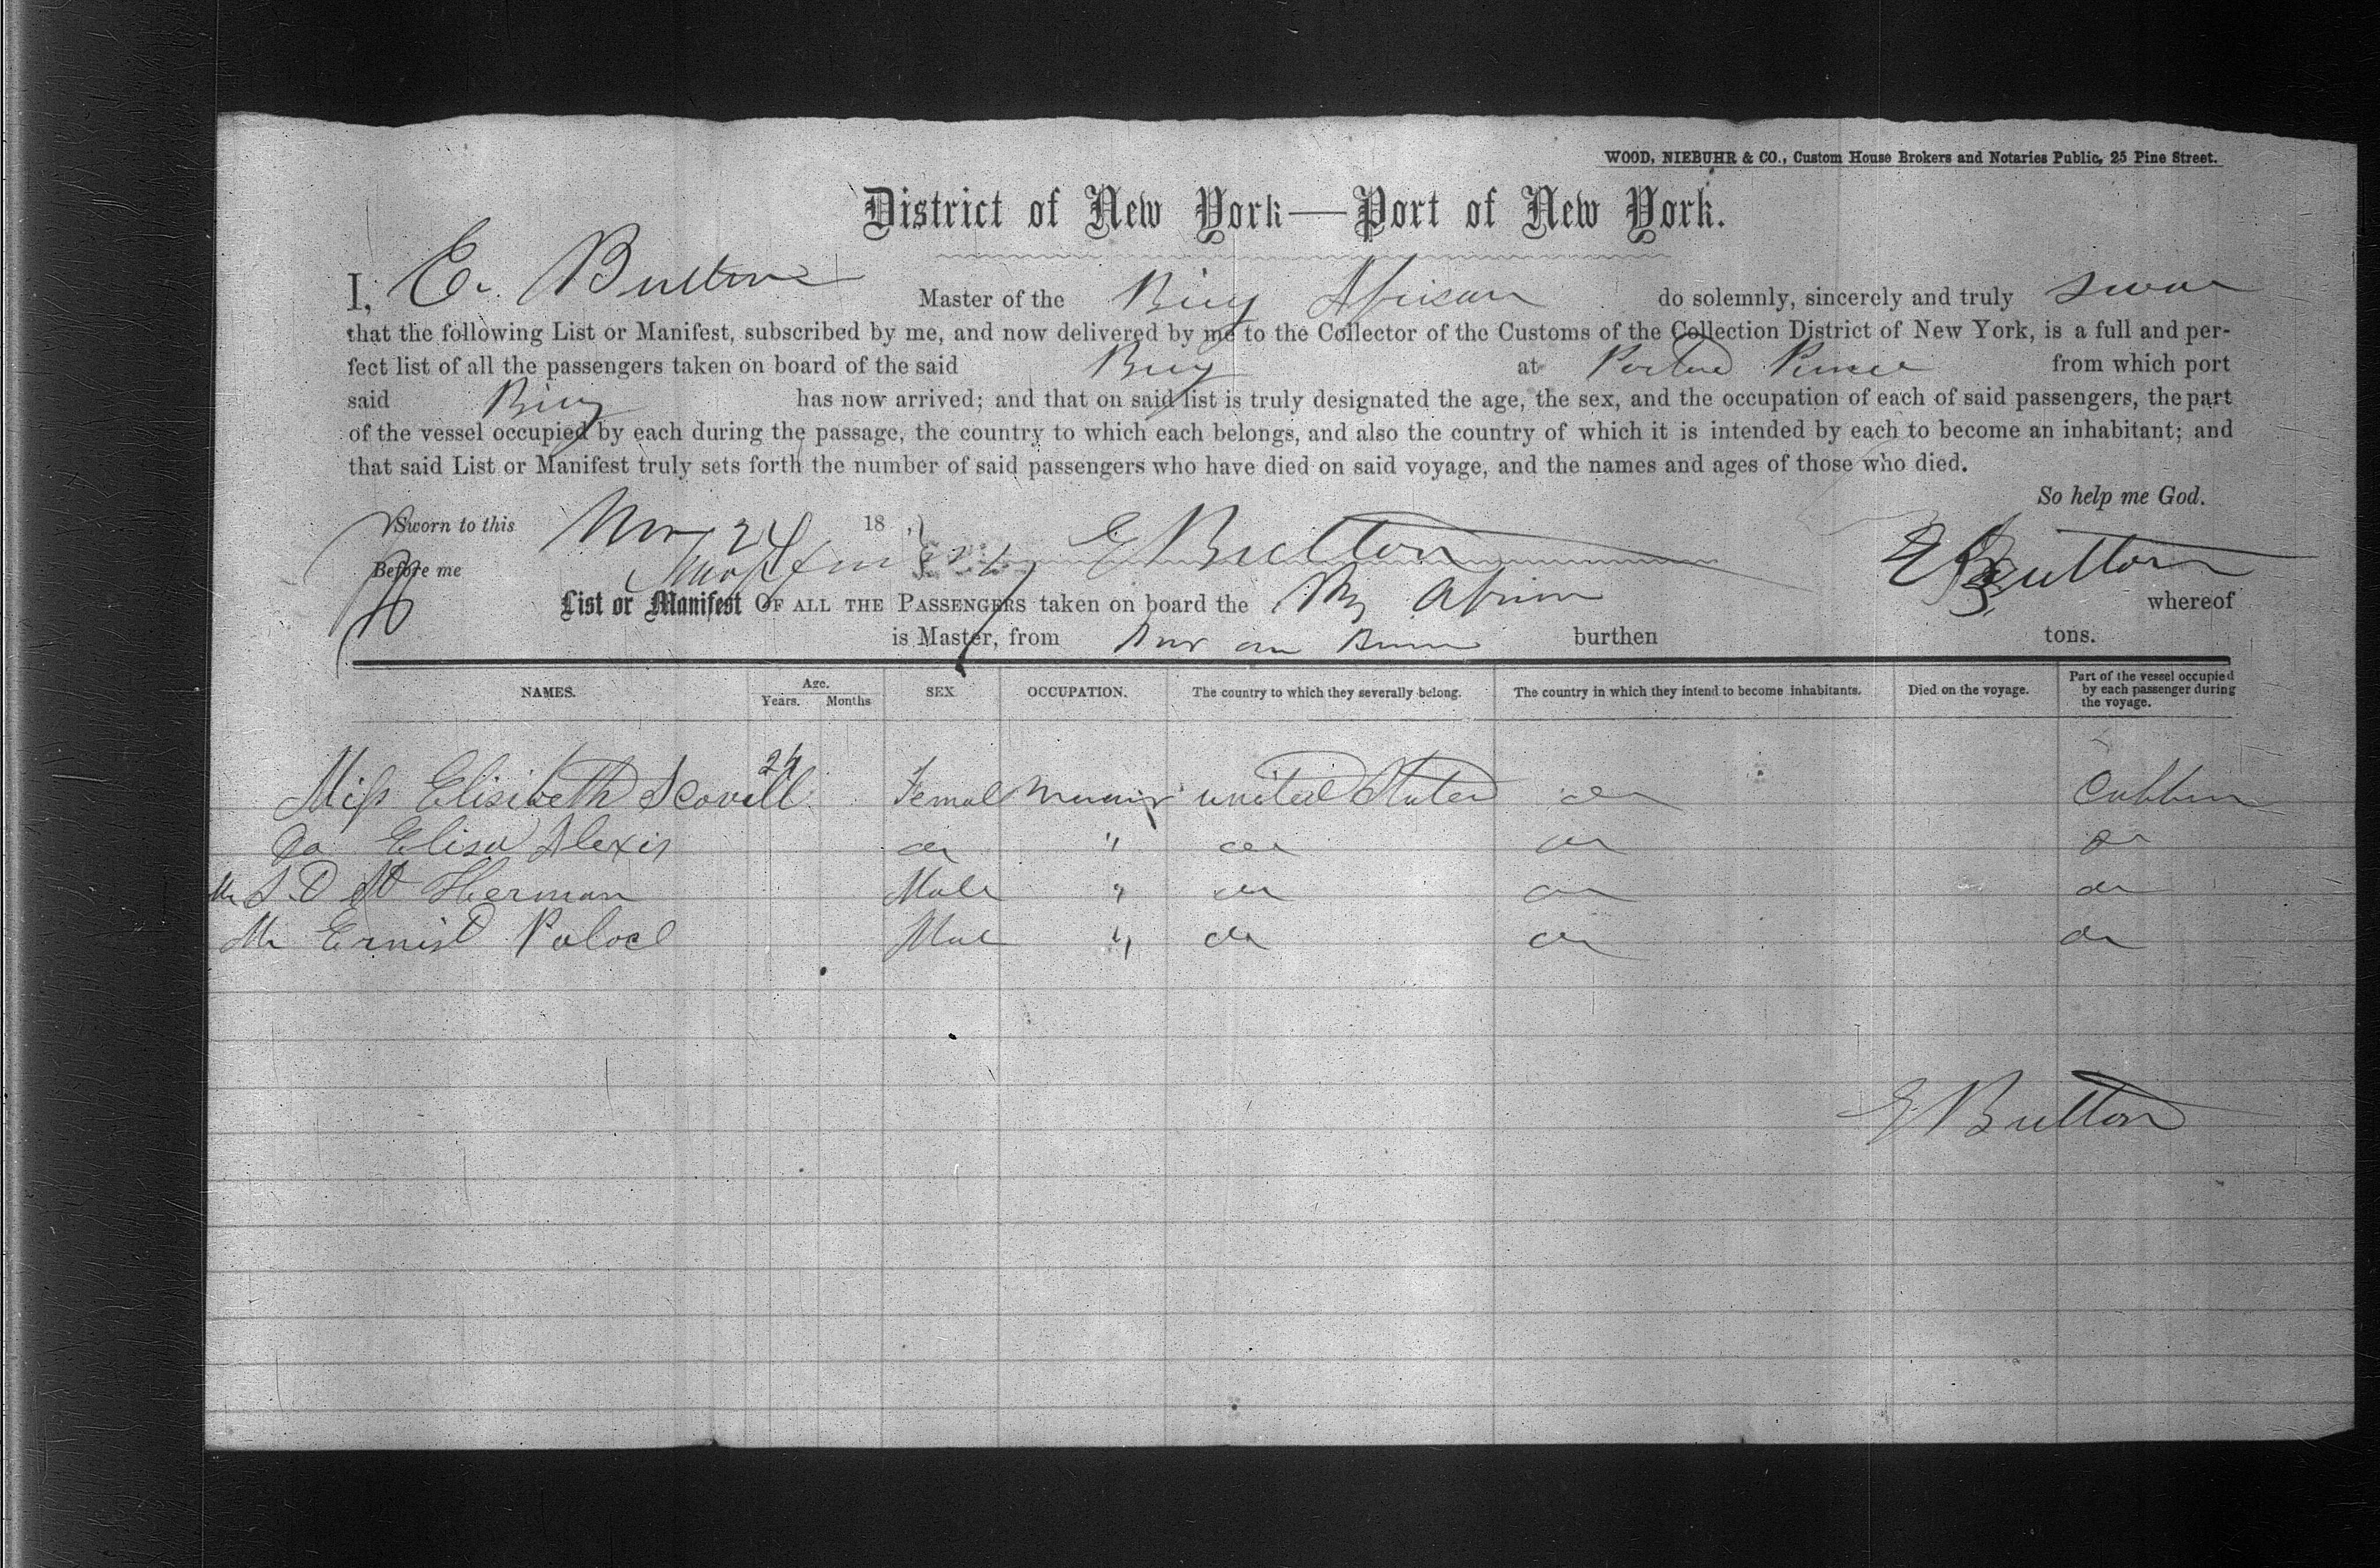 WOOD, NIEBUHR & CO., Custom House Brokers and Notaries Public, 25 Pine Street.
District of New York—Port of New York.
I, E. Button Master of the Brig African do solemnly, sincerely and truly swear
that the following List or Manifest, subscribed by me, and now delivered by me to the Collector of the Customs of the Collection District of New York, is a full and per-
fect list of all the passengers taken on board of the said Brig at Portau Prince from which port
said Brig has now arrived; and that on said list is truly designated the age, the sex, and the occupation of each of said passengers, the part
of the vessel occupied by each during the passage, the country to which each belongs, and also the country of which it is intended by each to become an inhabitant; and
that said List or Manifest truly sets forth the number of said passengers who have died on said voyage, and the names and ages of those who died.
So help me God.
Sworn to this Nov 24 18 E Button
Before me E Button
List or Manifest OF ALL THE PASSENGERS taken on board the Brig African whereof
is Master, from Port au Prince burthen tons.
NAMES. Age. Years. Months SEX OCCUPATION. The country to which they severally belong. The country in which they intend to become inhabitants. Died on the voyage. Part of the vessel occupied by each passenger during the voyage.
Miss Elisibeth Scovill 24 Femal united States do Cabbin
Do Elisa Alexis do " do do do
Mr S. D St Herman Male " do do do
Mr Ernist Poloce Male " do do do
E Button